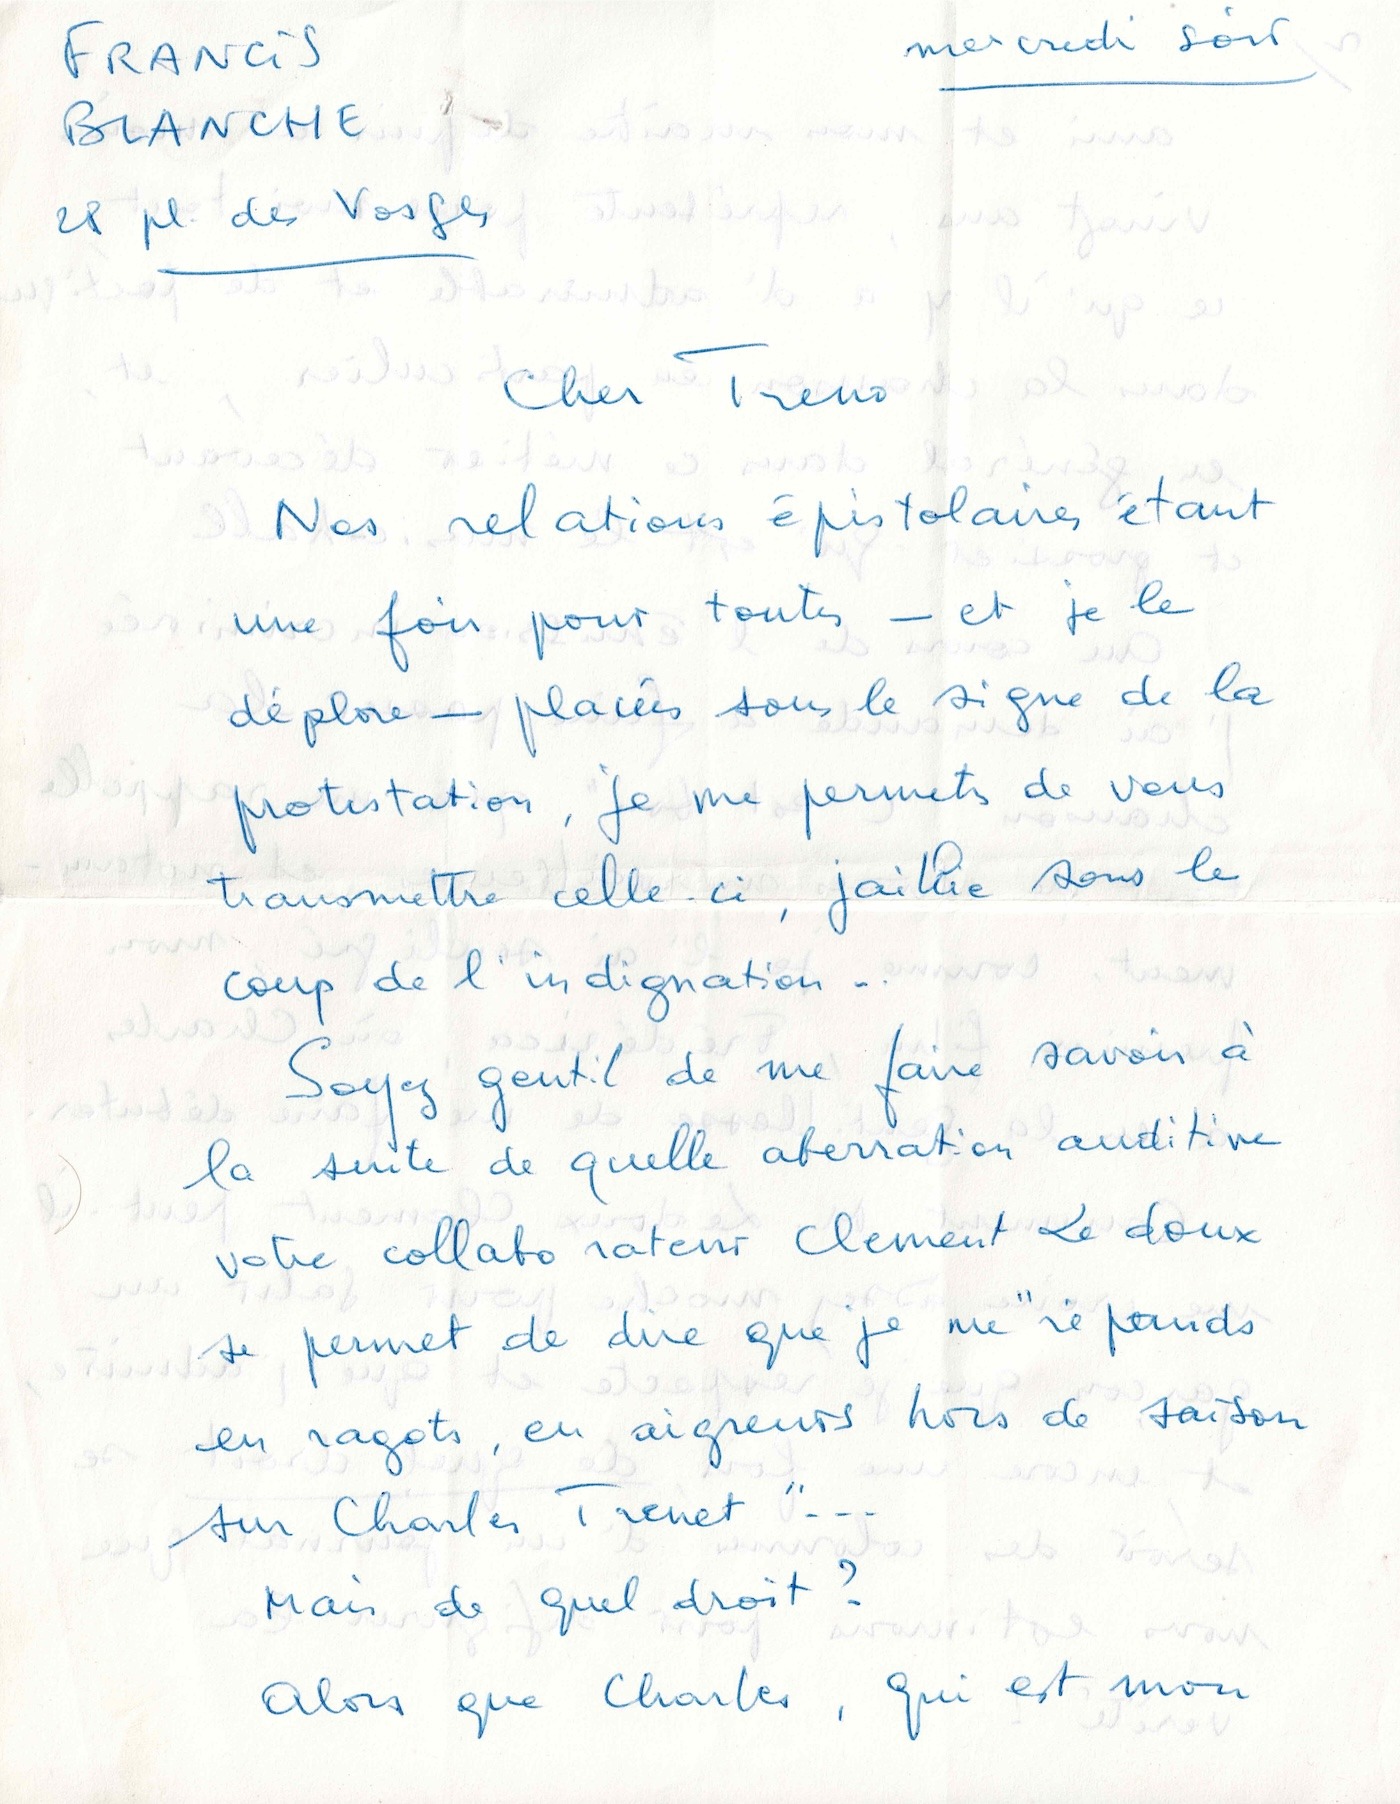 FRANCIS
BLANCHE
28 pl. des Vosges
mercredi soir
Cher Treno
Nos relations épistolaires étant
une fois pour toutes — et je le
déplore — placées sous le signe de la
protestation, je me permets de vous
transmettre celle-ci, jaillie sous le
coup de l'indignation ...
Soyez gentil de me faire savoir à
la suite de quelle aberration auditive
votre collaborateur Clement Ledoux
se permet de dire que je me "répands
en ragots, en aigreurs hors de saison
sur Charles Trenet "...
Mais de quel droit ?
Alors que Charles, qui est mon